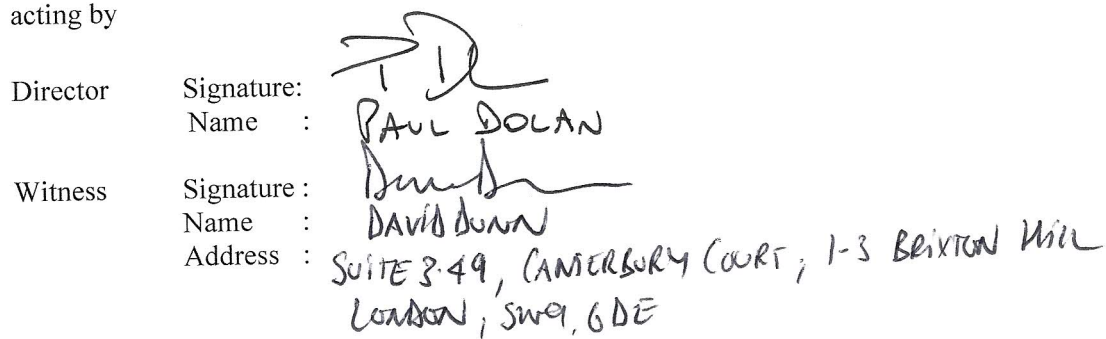 acting by
Director Signature:
Name : PAUL DOLAN
Witness Signature :
Name : DAVID DUNN
Address : SUITE 3.49, CANTERBURY COURT, 1-3 BRIXTON HILL
LONDON, SW9, 6DE